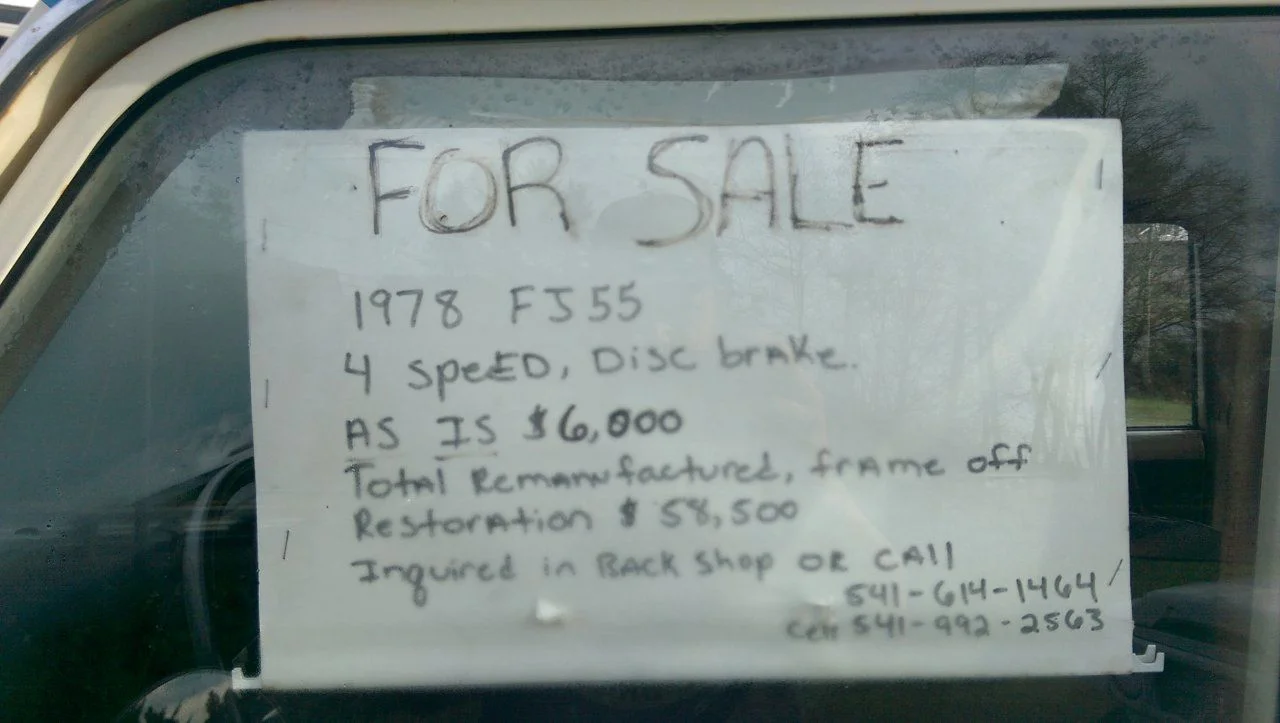 FOR SALE
1978 FJ55
4 speeD, Disc brAke.
AS IS $6,000
Total Remanufactured, frAme off
Restoration $58,500
Inquired in BACK Shop OR CAll
541-614-1464
Cell 541-992-2563